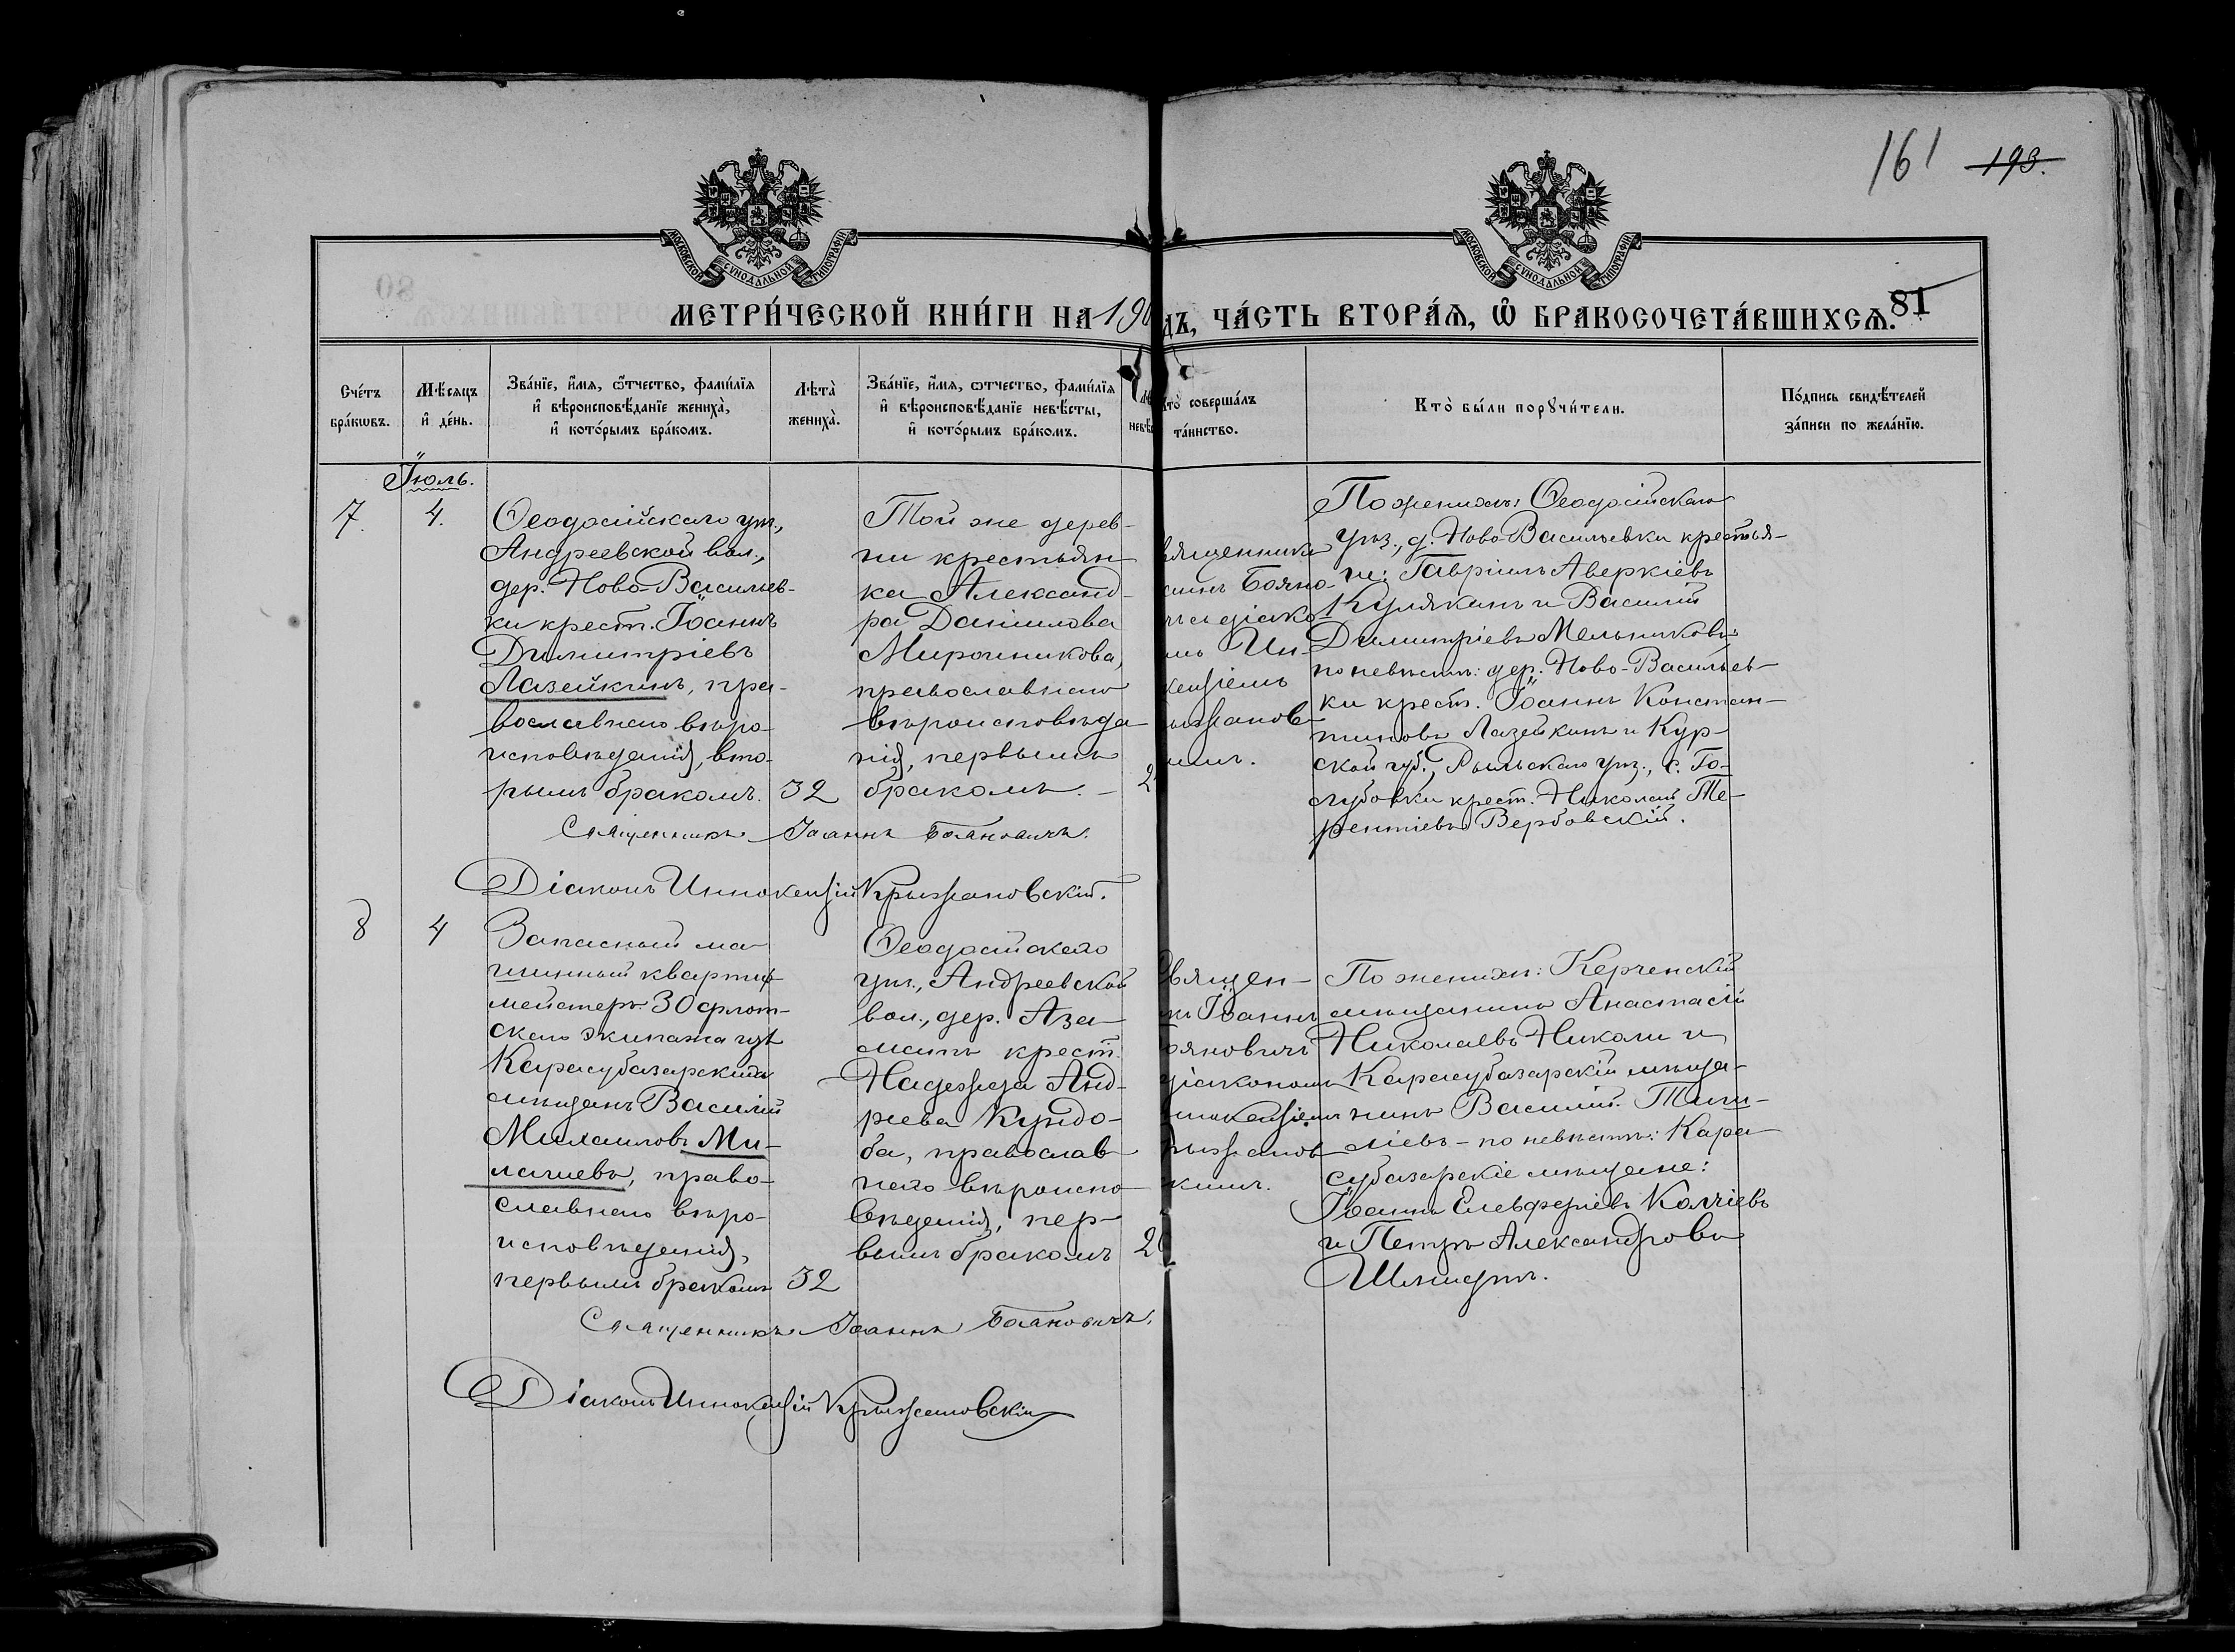 161 193.
МОСКОВСКОЙ СУНОДАЛЬНОЙ ТИПОГРАФІИ
МОСКОВСКОЙ СУНОДАЛЬНОЙ ТИПОГРАФІИ
80
МЕТРИ́ЧЕСКОЙ КНИ́ГИ НА 190
ДЪ, ЧА́СТЬ ВТОРА́Ѧ, Ѽ БРАКОСОЧЕТА́ВШИХСѦ. 81
Сче́тъ бра́кѡвъ.
Мѣ́сяцъ и҆ де́нь.
Зва́нїе, и҆́мѧ, ѻ҆́тчество, фами́лїѧ и҆ вѣроисповѣ́данїе жениха̀, и҆ кото́рымъ бра́комъ.
Лѣта̀ жениха̀.
Зва́нїе, и҆́мѧ, ѻтчество, фами́лїѧ и҆ вѣроисповѣ́данїе невѣ́сты, и҆ кото́рымъ бра́комъ.
Лѣ невѣ
Кто̀ соверша́лъ та́инство.
Кто̀ бы́ли порꙋчи́тели.
По́дпись свидѣ́телей за́писи по жела́нїю.
Іюль.
7. 4.
Ѳеодосійскаго уѣз.,
Андреевской вол.,
дер. Ново-Васильев-
ки крест. Іоаннъ
Димитріевъ
Лазейкинъ, пра-
вославнаго вѣро-
исповѣданія, вто-
рымъ бракомъ. 32
Той же дерев-
ни крестьян-
ка Александ-
ра Даніилова
Мирошникова,
православнаго
вѣроисповѣда-
нія, первымъ
бракомъ. - 2
вященникъ
аннъ Бояно-
чъ и діако-
мъ Ин-
кентіемъ
ыжанов-
имъ.
По женихѣ: Ѳеодосійскаго
уѣз., д. Ново-Васильевки крестья-
не: Гавріилъ Аверкіевъ
Кулякинъ и Василій
Димитріевъ Мельниковъ;
по невѣстѣ: дер. Ново-Васильев-
ки крест. Іоаннъ Констан-
тиновъ Лазейкинъ и Кур-
ской губ., Рыльскаго уѣз., с. Го-
лубовки крест. Николай Те-
рентіевъ Вербовскій.
Священникъ Іоаннъ Бояновичъ.
Діаконъ Иннокентій Крыжановскій.
8 4
Запасный ма-
шинный квартир-
мейстеръ 30 флот-
скаго экипажа изъ
Карасубазарскихъ
мѣщанъ Василій
Михаиловъ Ми-
лашевъ, право-
славнаго вѣро-
исповѣданія,
первымъ бракомъ 32
Ѳеодосійскаго
уѣз., Андреевской
вол., дер. Аза-
матъ крест.
Надежда Анд-
реева Кундо-
ба, православ-
наго вѣроиспо-
вѣданія, пер-
вымъ бракомъ 2
Священ-
къ Іоаннъ
ояновичъ
діакономъ
нокентіемъ
рыжанов-
кимъ.
По женихѣ: Керченскій
мѣщанинъ Анастасій
Николаевъ Николи и
Карасубазарскій мѣща-
нинъ Василій
по невѣстѣ: Кара-
субазарскіе мѣщане:
Іоаннъ Елевферіевъ Калчіевъ
и Петръ Александровъ
Шмидтъ.
Священникъ Іоаннъ Бояновичъ.
Діаконъ Иннокентій Крыжановскій